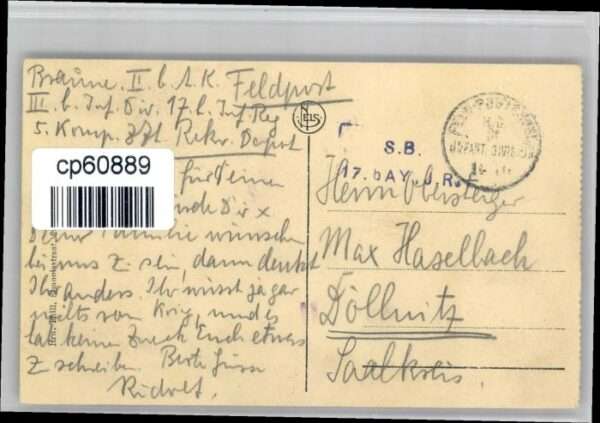 Braune. II. b. A. K. Feldpost
III. b. Inf. Div. 17 b. Inf. Reg
5. Komp. zZt. Rekr. Depot
cp60889
für Deinen
Familie wünschen
bei uns z. sein, dann denkst
Ihr anders. Ihr wisst ja gar
nichts vom Krieg, und es
hat keinen Zweck Euch etwas
z schreiben. Beste Grüsse
NELS
S.B.
17. BAY. J. R.
Herrn Obersteiger
Max Haselbach
Döllnitz
Saalkreis.